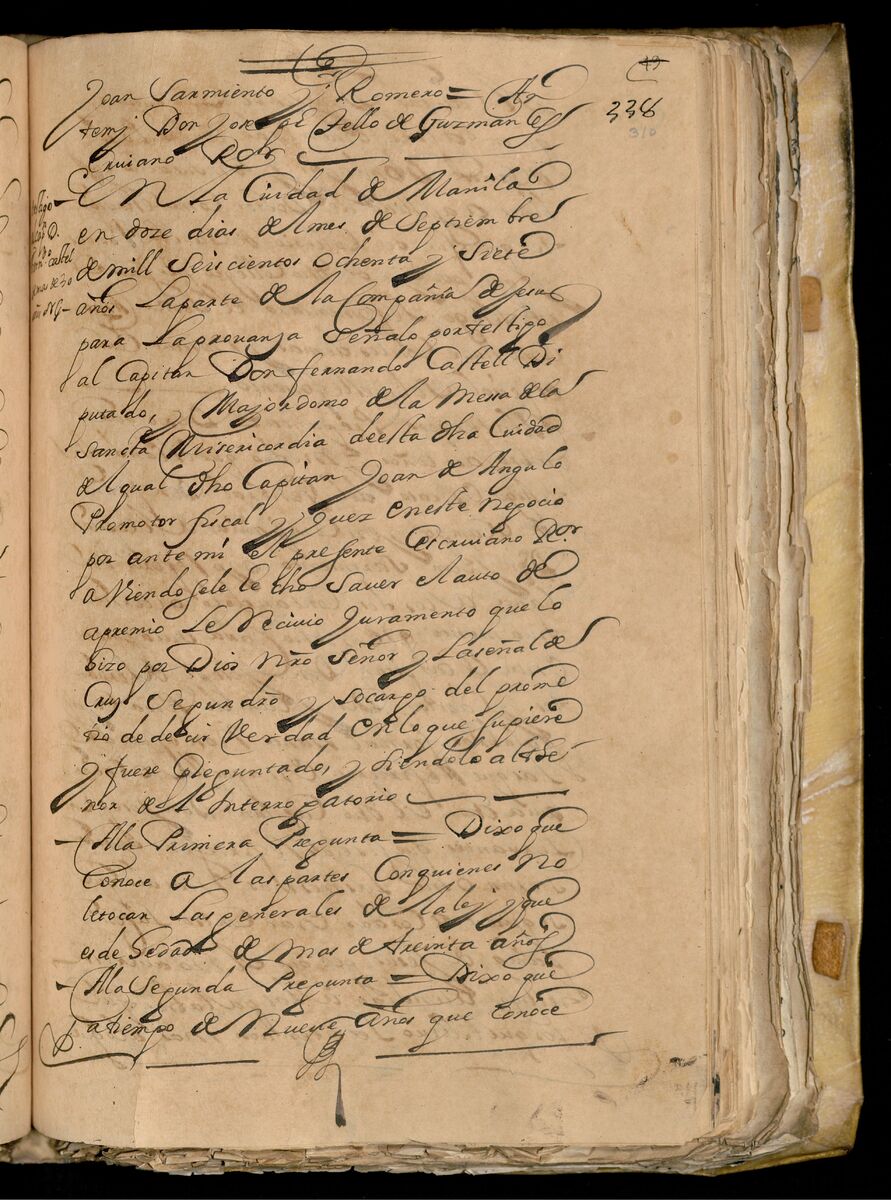 49
338
310
Joan Sarmiento y Romero = An
temj Don Joseph Tello de Guzman es
criuano Rōr
En La Ciudad de Manila
en doze dias del mes de Septiembre
de mill seiscientos ochenta y siete
años La parte de la Compañia de Jesus
para La prouanza señalo por testigo
al Capitan Don fernando Castell Di
putado, y Majordomo de la Messa de la
sancta Misericordia de esta dha Ciudad
del qual dho Capitan Joan de Angulo
Promotor fiscal y Juez en este negocio
por ante mi el presente escriuano Rōr
aViendosele hecho sauer el auto de
apremio Le Reciuio Juramento que lo
hizo por Dios nr̃o Señor y La señal de
Cruz segun dr̃o y so cargo del prome
tio de decir Verdad en lo que supiere
y fuere preguntado, y siendolo al the
nor del Interrogatorio
A la Primera Pregunta = Dixo que
Conoce a las partes Con quienes No
le tocan Las generales de la lej y que
es de hedad de mas de treinta años
A la Segunda Pregunta = Dixo que
a tiempo de Nueue años que Conoce
testigo
D.
castel
mas de 30